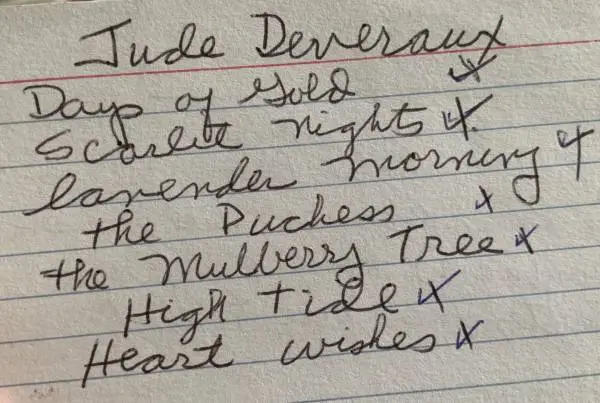 Jude Deveraux
Days of Gold x
Scarlet Nights x
lavender morning x
the Duchess x
the Mulberry Tree x
High Tide x
Heart wishes x